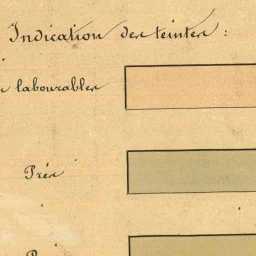 Indication des teintes :
labourables
Prés